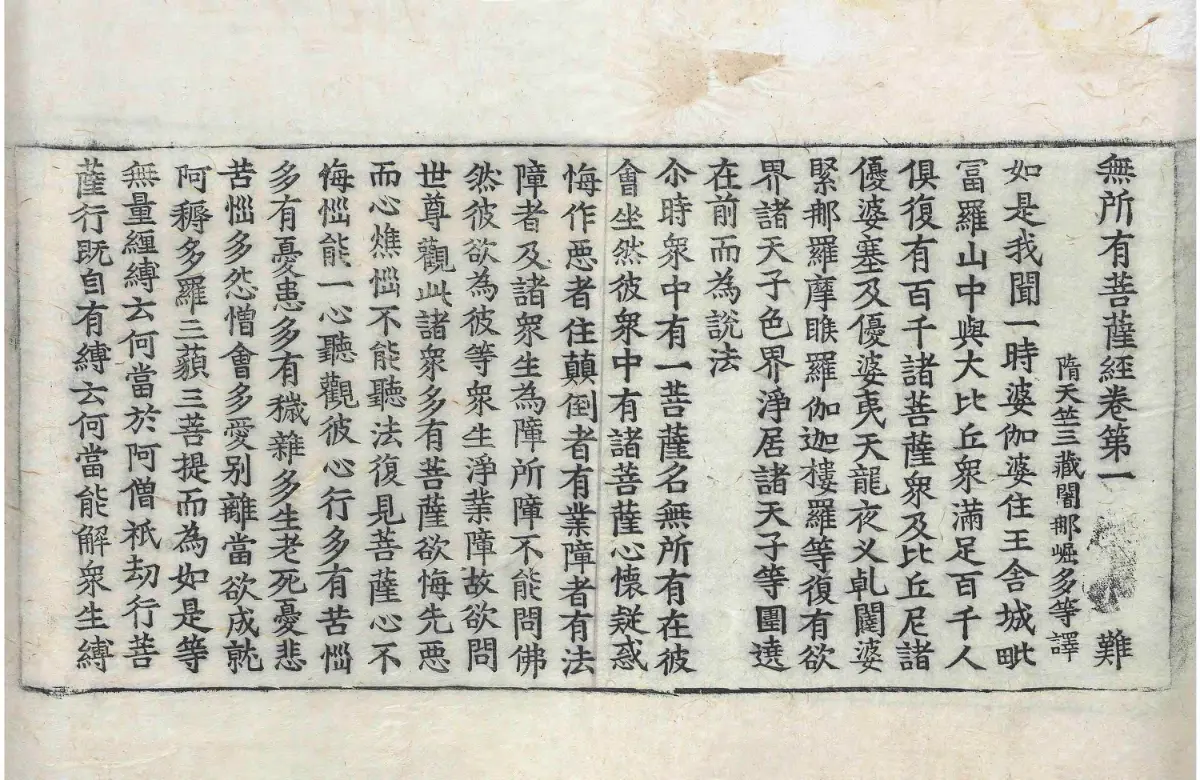 無所有菩薩經卷第一 難
隋天竺三藏闍那崛多等譯
如是我聞一時婆伽婆住王舍城毗
冨羅山中與大比丘衆滿足百千人
俱復有百千諸菩薩衆及比丘尼諸
優婆塞及優婆夷天龍夜义乹闥婆
緊那羅摩睺羅伽迦樓羅等復有欲
界諸天子色界淨居諸天子等圍遶
在前而為說法
尒時衆中有一菩薩名無所有在彼
會坐然彼衆中有諸菩薩心懷疑惑
悔作惡者住顛倒者有業障者有法
障者及諸衆生為障所障不能問佛
然彼欲為彼等衆生淨業障故欲問
世尊觀此諸衆多有菩薩欲悔先惡
而心燋惱不能聽法復見菩薩心不
悔惱能一心聽觀彼心行多有苦惱
多有憂患多有穢雜多生老死憂悲
苦惱多怨憎會多愛别離當欲成就
阿耨多羅三藐三菩提而為如是等
無量纒縛云何當於阿僧祇劫行菩
薩行既自有縛云何當能解衆生縛